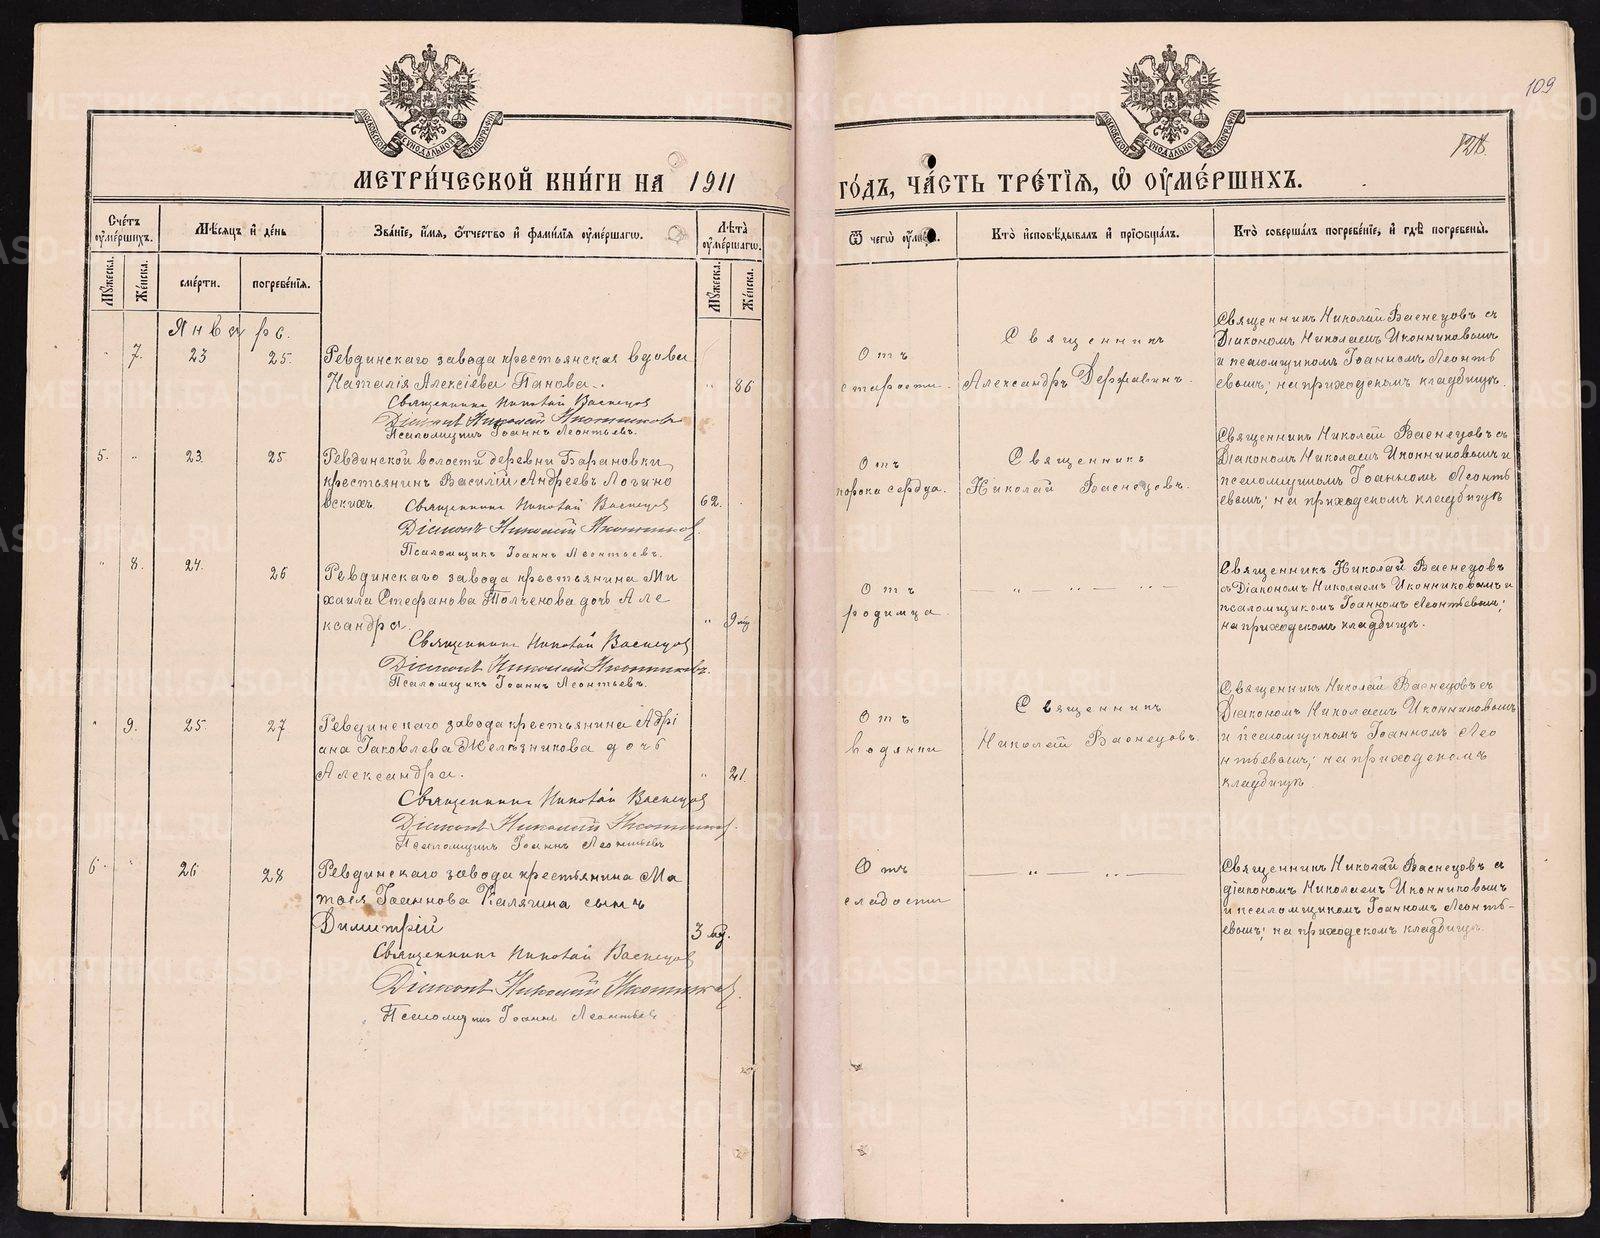 109
128.
МОСКОВСКОЙ СѴНОДАЛЬНОЙ ТИПОГРАФІИ
МОСКОВСКОЙ СѴНОДАЛЬНОЙ ТИПОГРАФІИ
МЕТРИ́ЧЕСКОЙ КНИ́ГИ НА 1911 ГО́ДЪ, ЧА́СТЬ ТРЕ́ТІѦ, Ѡ҆ ОУ҆МЕ́РШИХЪ.
Сче́тъ оу҆ме́ршихъ.
Мѣ́сѧцъ и҆ де́нь
Зва́нїе, и҆́мѧ, ѻ҆́тчество и҆ фами́лїѧ оу҆ме́ршагѡ.
Лѣ́та оу҆ме́ршагѡ.
Ѿ чегѡ̀
Кто̀ и҆сповѣ́дывалъ и҆ прїѡбща́лъ.
Кто̀ соверша́лъ погребе́нїе, и҆ гдѣ̀ погребены̀.
Мꙋ́жеска.
Же́нска.
сме́рти.
погребе́нїѧ.
Мꙋ́жеска.
Же́нска.
Январь.
" 7. 23 25.
Ревдинскаго завода крестьянская вдова
Наталія Алексіева Панова.
" 86
Священникъ Николай Васнецовъ
Діаконъ Николай Иконниковъ
Псаломщикъ Іоаннъ Леонтьевъ.
Отъ
старости.
Священникъ
Александръ Державинъ.
Священникъ Николай Васнецовъ съ
Діакономъ Николаемъ Иконниковымъ
и псаломщикомъ Іоанномъ Леонть
евымъ; на приходскомъ кладбищѣ.
5. " 23. 25
Ревдинской волости деревни Барановки
крестьянинъ Василій Андреевъ Логино
вскихъ.
62.
Священникъ Николай Васнецовъ
Діаконъ Николай Иконниковъ.
Псаломщикъ Іоаннъ Леонтьевъ.
Отъ
порока сердца.
Священникъ
Николай Васнецовъ.
Священникъ Николай Васнецовъ съ
Діакономъ Николаемъ Иконниковымъ и
псаломщикомъ Іоанномъ Леонть
евымъ; на приходскомъ кладбищѣ
" 8. 24. 26
Ревдинскаго завода крестьянина Ми
хаила Стефанова Толченова дочь Але
ксандра.
" 9 мц.
Священникъ Николай Васнецовъ
Діаконъ Николай Иконниковъ.
Псаломщикъ Іоаннъ Леонтьевъ.
Отъ
родимца.
— " — " —
Священникъ Николай Васнецовъ
съ Діакономъ Николаемъ Иконниковымъ и
псаломщикомъ Іоанномъ Леонтьевымъ;
на приходскомъ кладбищѣ.
" 9. 25. 27
Ревдинскаго завода крестьянина Адрі
ана Іаковлева Желѣзникова дочь
Александра.
" 21.
Священникъ Николай Васнецовъ
Діаконъ Николай Иконниковъ.
Псаломщикъ Іоаннъ Леонтьевъ
Отъ
водянки
Священникъ
Николай Васнецовъ.
Священникъ Николай Васнецовъ съ
Діакономъ Николаемъ Иконниковымъ
и псаломщикомъ Іоанномъ Лео
нтьевымъ; на приходскомъ
кладбищѣ.
6. " 26 28
Ревдинскаго завода крестьянина Ма
тѳея Іоаннова Калягина сынъ
Димитрій
3 мц.
Священникъ Николай Васнецовъ
Діаконъ Николай Иконниковъ.
Псаломщикъ Іоаннъ Леонтьевъ
Отъ
слабости
— " — " —
Священникъ Николай Васнецовъ съ
діакономъ Николаемъ Иконниковымъ
и псаломщикомъ Іоанномъ Леонть-
евымъ; на приходскомъ кладбищѣ.
METRIKI.GASO-URAL.RU